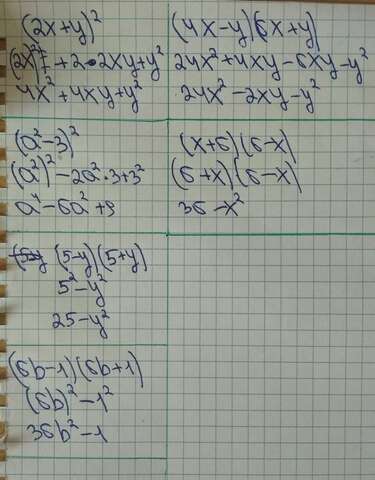 (2x+y)²
(2x)²+ +2•2xy+y²
4x²+4xy+y²
(4x-y)(6x+y)
24x²+4xy-6xy-y²
24x²-2xy-y²
(a²-3)²
(a²)²-2a²·3+3²
a⁴-6a²+9
(x+6)(6-x)
(6+x)(6-x)
36-x²
(5-y)(5+y)
5²-y²
25-y²
(6b-1)(6b+1)
(6b)²-1²
36b²-1